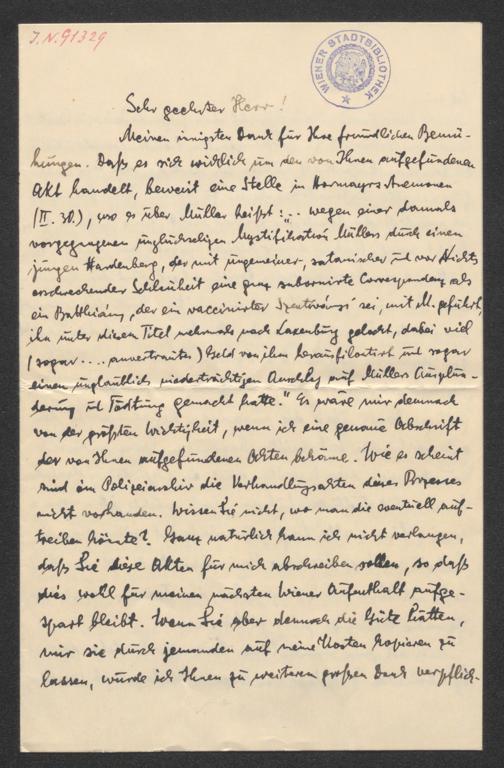 J.N. 91329
WIENER STADTBIBLIOTHEK
Sehr geehrter Herr!
Meinen innigsten Dank für Ihre freundlichen Bemü-
hungen. Daß es sich wirklich um den von Ihnen aufgefundenen
Akt handelt, beweist eine Stelle in Hormayrs Anemonen
(II. 38.), wo es über Müller heißt: „.. wegen einer damals
vorgegangenen unglückseligen Mystifikation Müllers durch einen
jungen Hardenberg, der mit ungemeiner, satanischer und vor Nichts
erschreckender Schlauheit eine ganz subornirte Correspondenz als
ein Batthiány, der ein vaccinirter Szentiványi sei, mit M. geführt,
ihn unter diesem Titel mehrmals nach Laxenburg gelockt, dabei viel
(sogar .... anvertrautes) Geld von ihm herausfiloutirt und sogar
einen unglaublich niederträchtigen Anschlag auf Müllers Ausplün-
derung und Tödtung gemacht hatte." Es wäre mir demnach
von der größten Wichtigkeit, wenn ich eine genaue Abschrift
der von Ihnen aufgefundenen Akten bekäme. Wie es scheint
sind im Polizeiarchiv die Verhandlungsakten dieses Prozesses
nicht vorhanden. Wissen Sie nicht, wo man die eventuell auf-
treiben könnte? Ganz natürlich kann ich nicht verlangen,
daß Sie diese Akten für mich abschreiben sollen, so daß
dies wohl für meinen nächsten Wiener Aufenthalt aufge-
spart bleibt. Wenn Sie aber dennoch die Güte hätten,
mir sie durch jemanden auf meine Kosten kopieren zu
lassen, würde ich Ihnen zu weiterem großen Dank verpflich-